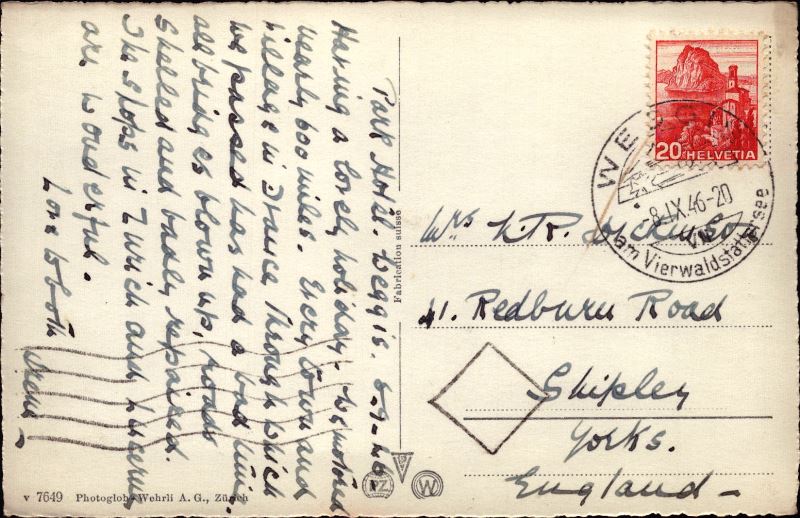 Park Hotel. Weggis. 8-9-46
Having a lovely holiday. We motored
nearly 600 miles. Every town and
village in France through which
we passed has had a bad time.
all bridges blown up, roads
shelled and badly repaired.
The shops in Zurich and Lucerne
are wonderful.
Love to both
Irene
Fabrication suisse
20 HELVETIA
WEGGIS
-8.IX.46-20
am Vierwaldstättersee
Mrs
41. Redburn Road
Shipley
Yorks.
England
PZ
W
v 7649 Photoglob-Wehrli A. G., Zürich